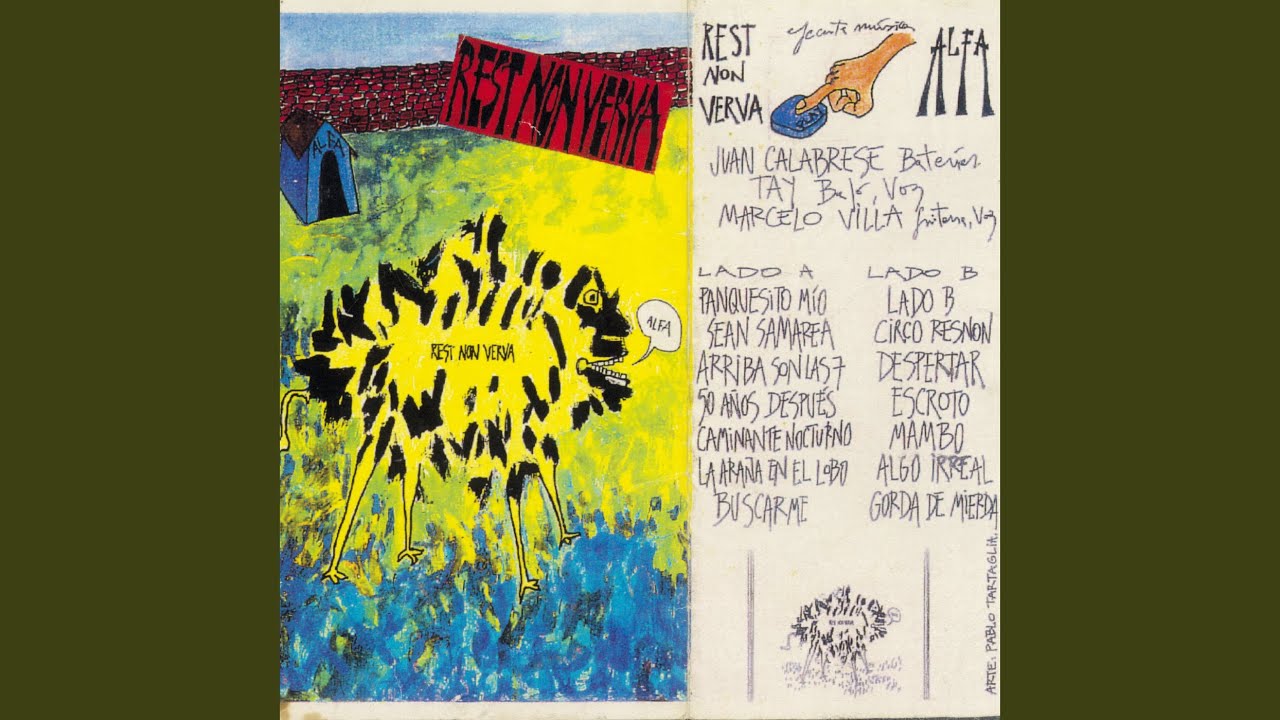 REST NON VERVA
ALFA
ALFA
REST NON VERVA
REST
NON
VERVA
ejecute música
PLAY
ALFA
JUAN CALABRESE Baterías
TAY Bajo, Voz
MARCELO VILLA guitarra, Voz
LADO A
PANQUESITO MÍO
SEAN SAMAREA
ARRIBA SON LAS 7
50 AÑOS DESPUÉS
CAMINANTE NOCTURNO
LA ARAÑA EN EL LOBO
BUSCARME
LADO B
LADO B
CIRCO RESNON
DESPERTAR
ESCROTO
MAMBO
ALGO IRREAL
GORDA DE MIERDA
REST NON VERVA
ARTE: PABLO TARTAGLIA.